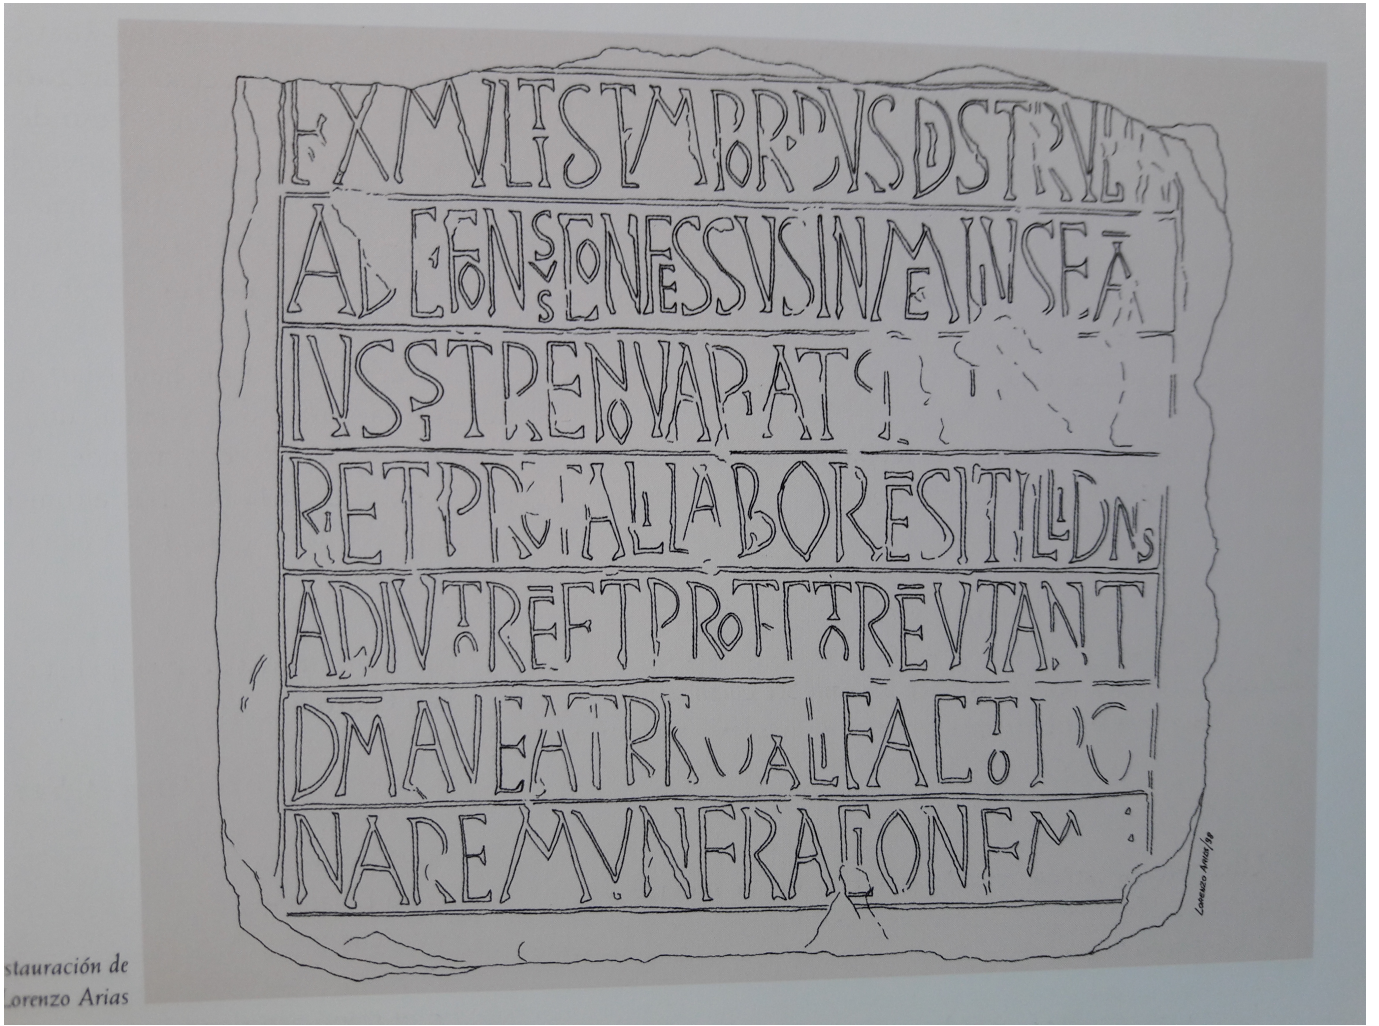 EX MVLTIS TMPORVS DSTRVC
ADEFONSVS CONFESSVS IN MELIVS FĀ
IVSSIT RENOVARI AT
RI ET PRO TALI LABORĒ SIT ILLI DNS
ADIVTORĒ ET PROTECTORĒ VT ANT
DM̄ AVEAT PRO TALI FACTO
NA REMVNERACIONEM
LORENZO ARIAS/98
stauración de
Lorenzo Arias